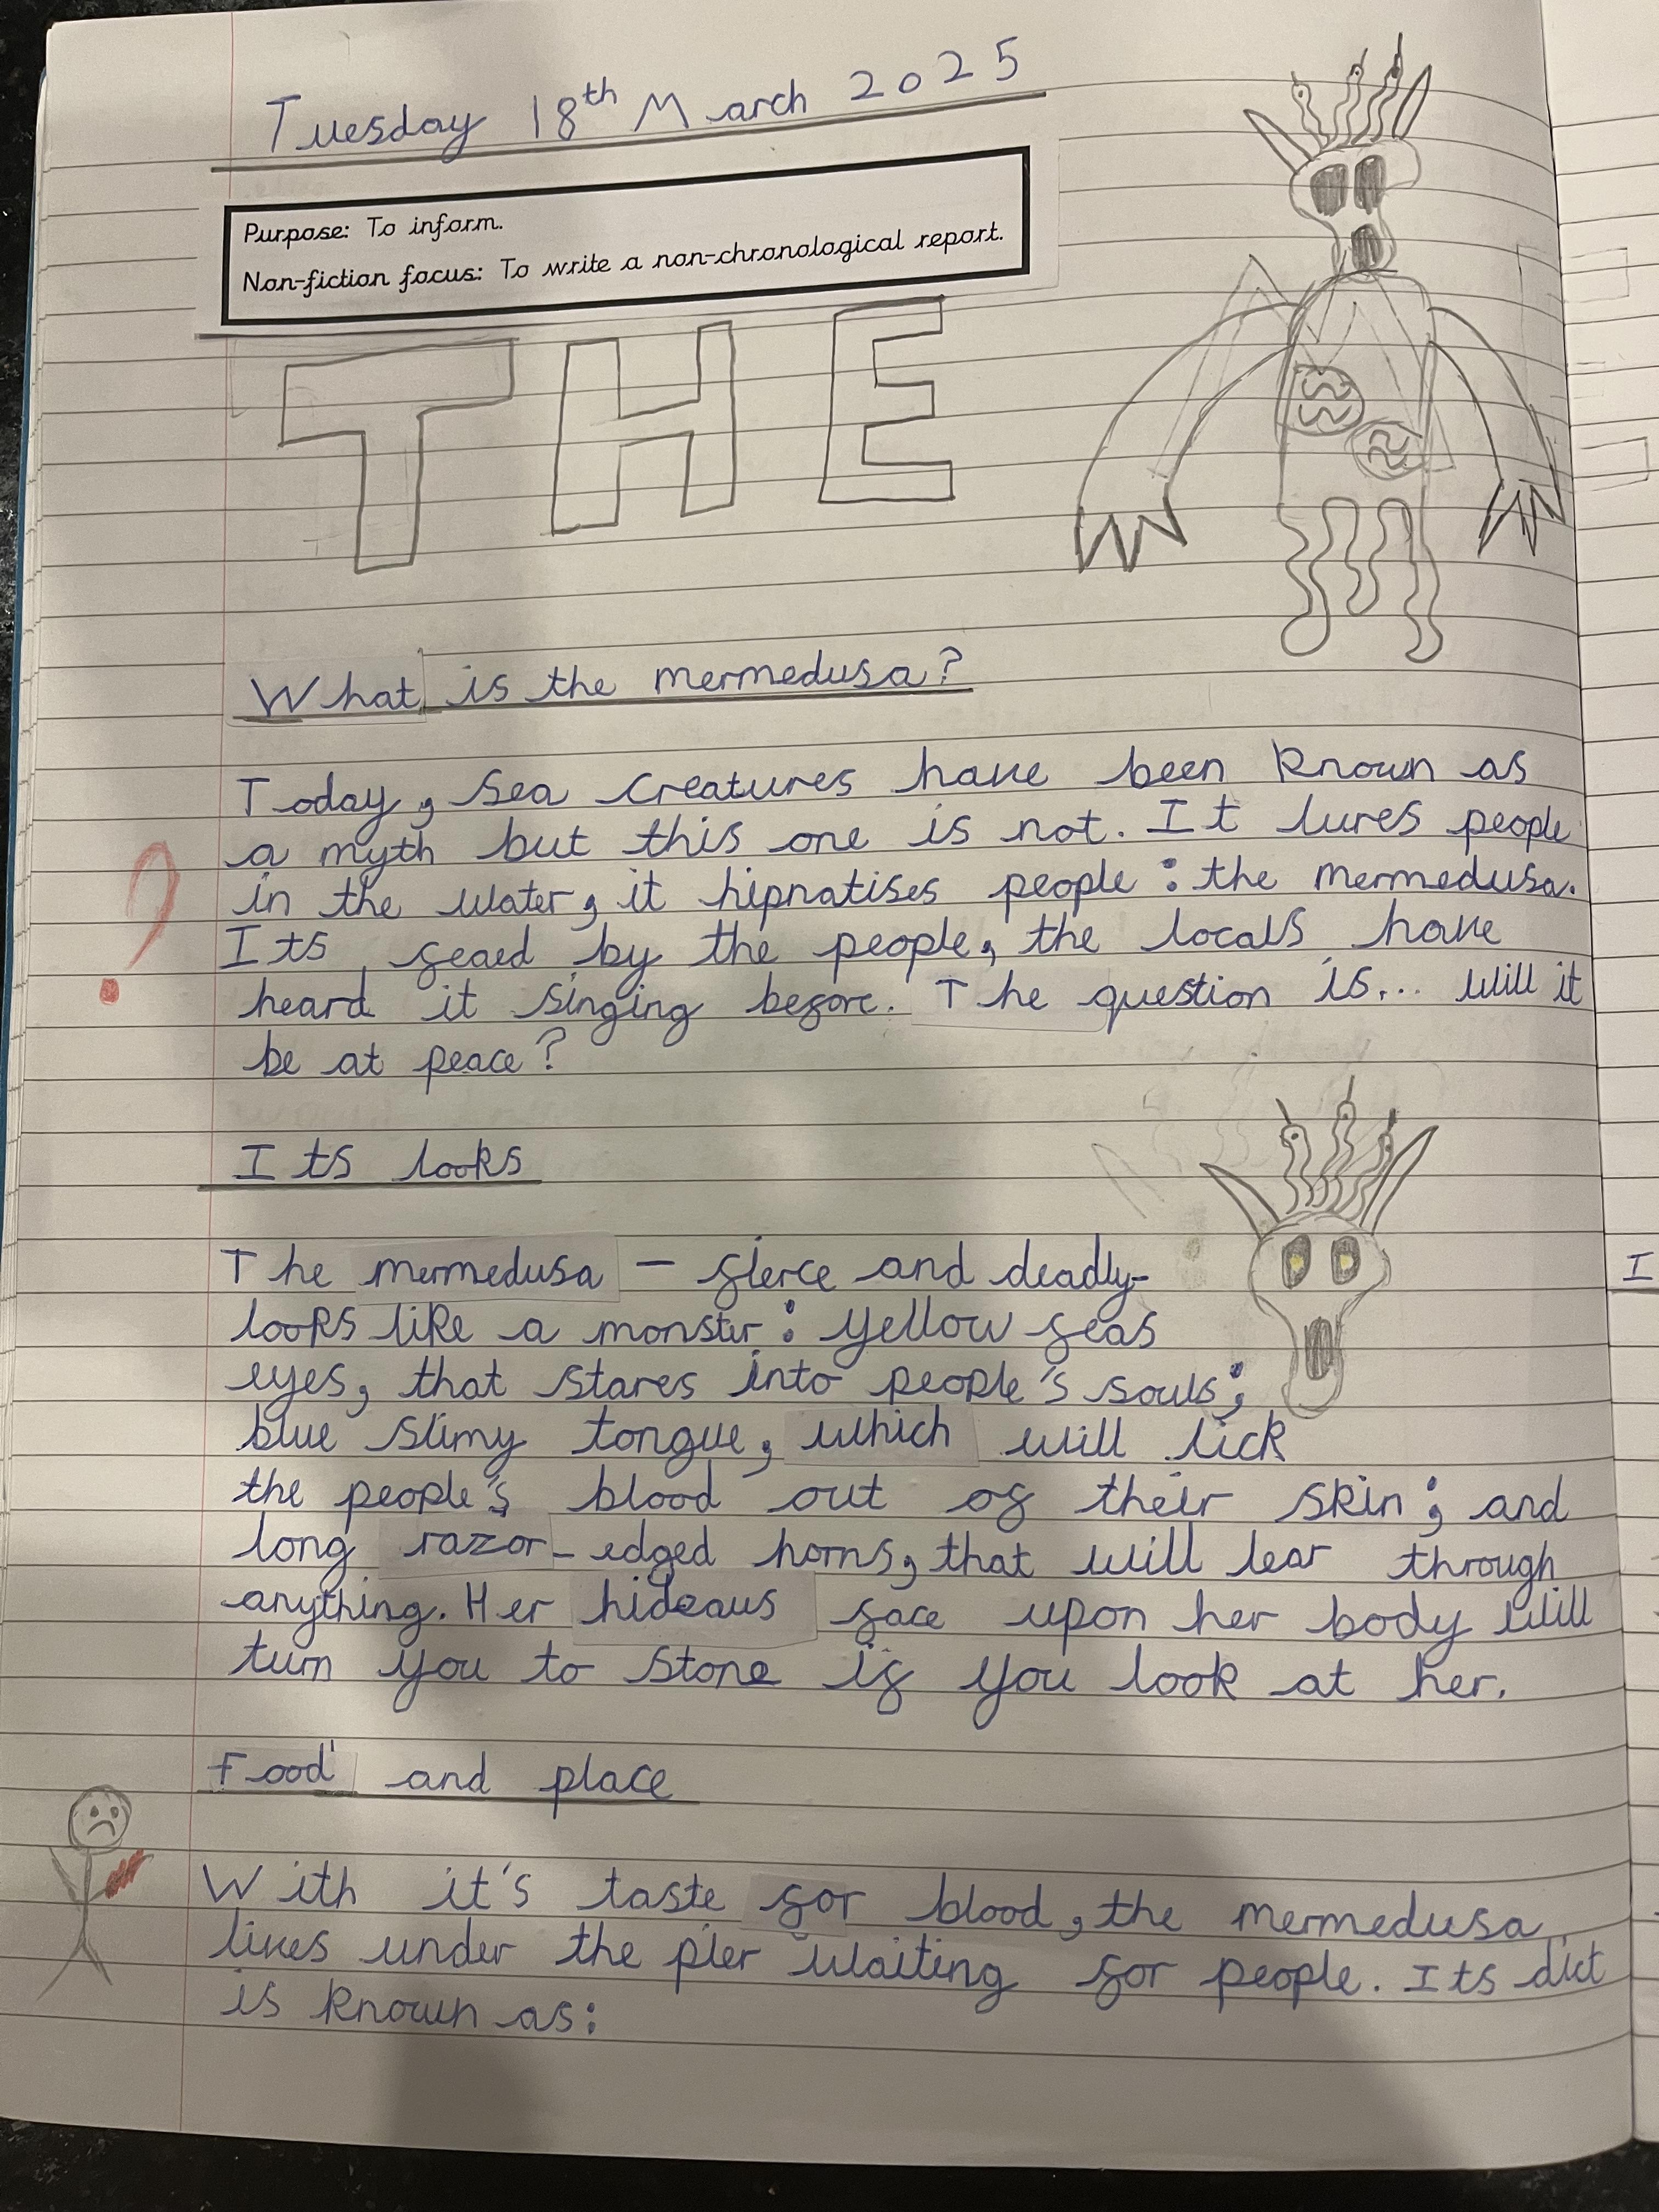 Tuesday 18th March 2025
Purpose: To inform.
Non-fiction focus: To write a non-chronological report.
THE
What is the mermedusa?
Today, sea creatures have been known as
a myth but this one is not. It lures people
in the water, it hipnatises people: the mermedusa.
Its feaed by the people, the locals have
heard it singing before. The question is... will it
be at peace?
?
Its looks
The mermedusa - fierce and deadly-
looks like a monster: yellow feas
eyes, that stares into people's souls;
blue slimy tongue, which will lick
the people's blood out of their skin; and
long razor-edged horns, that will tear through
anything. Her hideaus face upon her body will
turn you to stone if you look at her.
Food and place
With it's taste for blood, the mermedusa
lives under the pier waiting for people. Its diet
is known as:
I